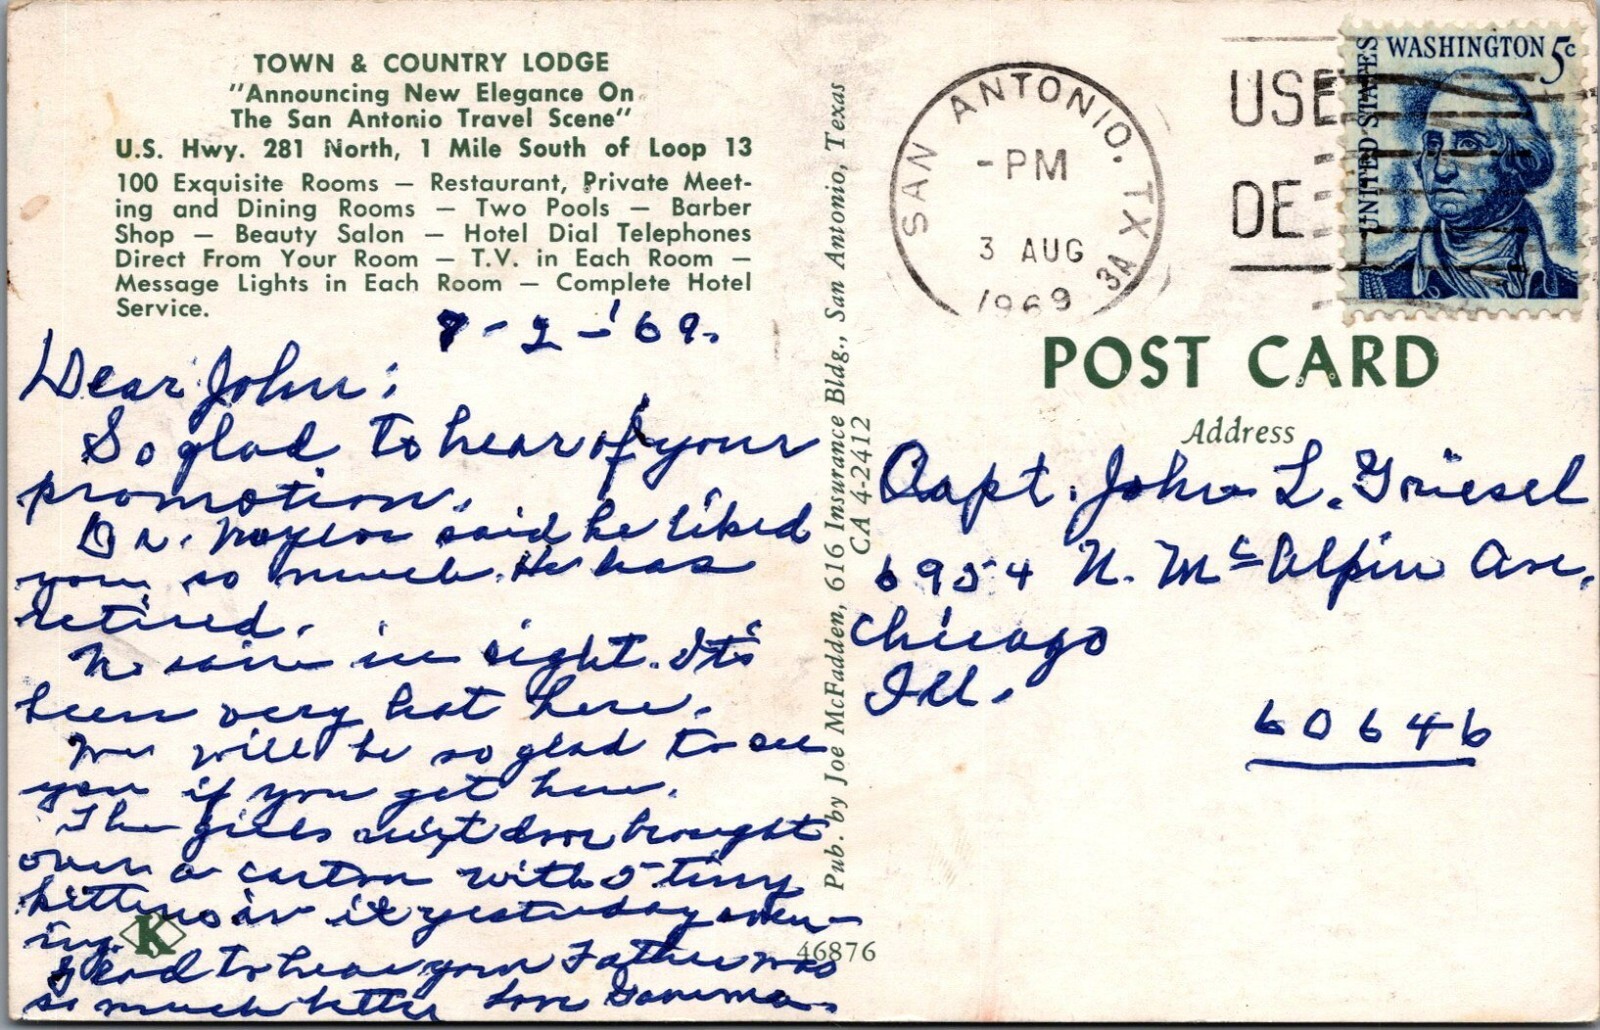 TOWN & COUNTRY LODGE
"Announcing New Elegance On
The San Antonio Travel Scene"
U.S. Hwy. 281 North, 1 Mile South of Loop 13
100 Exquisite Rooms — Restaurant, Private Meet-
ing and Dining Rooms — Two Pools — Barber
Shop — Beauty Salon — Hotel Dial Telephones
Direct From Your Room — T.V. in Each Room —
Message Lights in Each Room — Complete Hotel
Service.
-2-'69.
Dear John:
So glad to hear of your
promotion.
Dr. Naylor said he liked
you so much. He has
retired.
No rain in sight. It's
been very hot here.
We will be so glad to see
you if you get here.
The girls next door brought
over a carton with 5 tiny
kittens in it yesterday even-
ing.
K
Glad to hear your Father was
so much better Love
46876
Pub. by Joe McFadden, 616 Insurance Bldg., San Antonio, Texas
CA 4-2412
SAN ANTONIO. TX 3A
-PM
3 AUG
1969
USE
DE
UNITED STATES
WASHINGTON 5c
POST CARD
Address
Capt. John L. Griesel
6954 N. McAlpin Ave.
Chicago
Ill.
60646